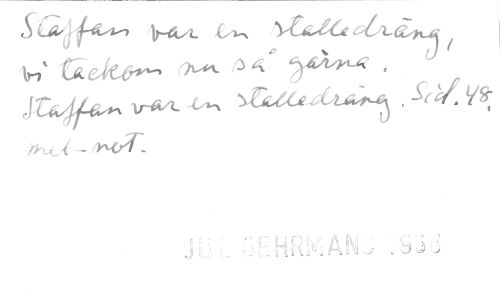 Staffan var en stalledräng,
vi tackom nu så gärna.
Staffan var en stalledräng. Sid. 48.
mel-not.
JUL GEHRMANS 1938